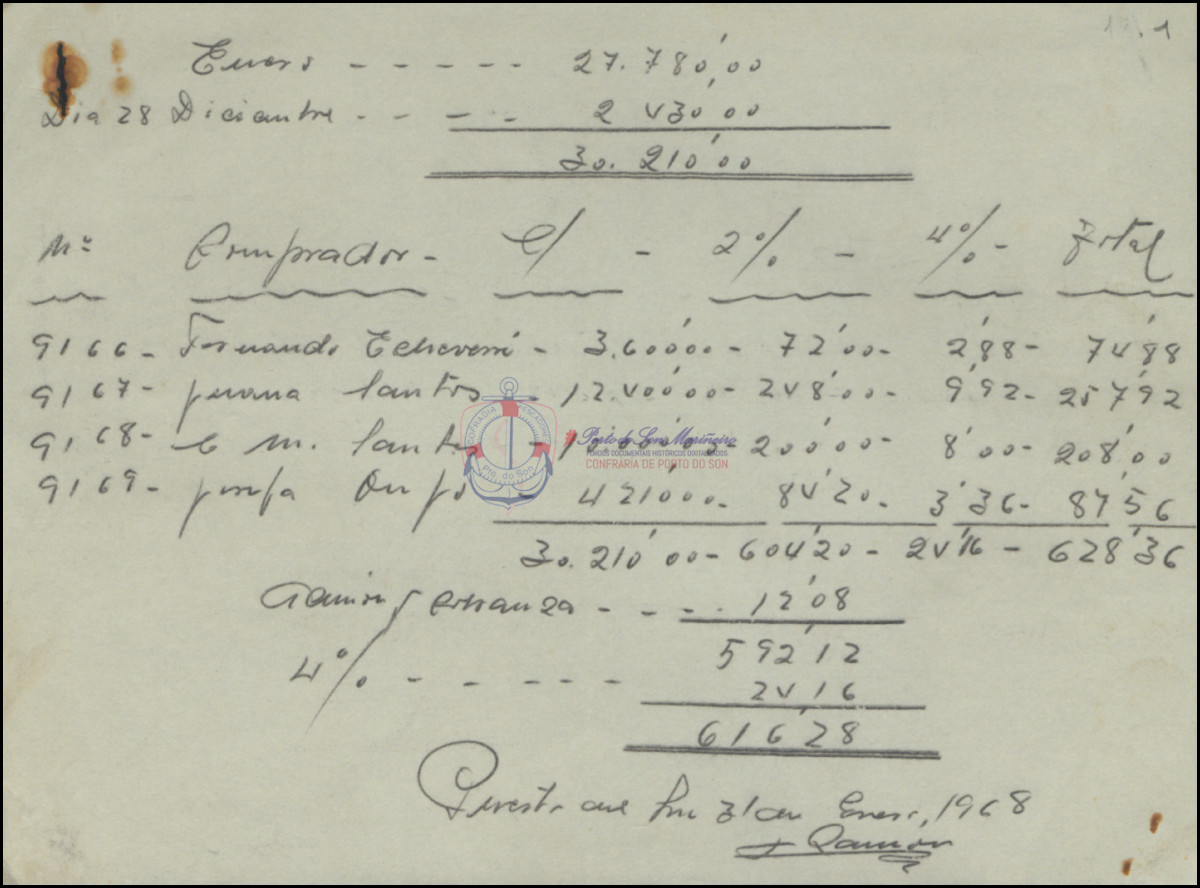 1
Enero - - - - - 27.780,00
Dia 28 Diciembre - - - - 2 430'00
30.210'00
Nº Comprador - C/ - 2% - 4% - Total
9166 - Fernando Echeverri - 3.600'00 - 72'00 - 2'88 - 74'88
9167 - Juana Santos - 12.400'00 - 248'00 - 9'92 - 257'92
9168 - C M. Santos - 10.000'00 - 200'00 - 8'00 - 208'00
9169 - Josefa - 4210'00 - 84'20 - 3'36 - 87'56
30.210'00 - 604'20 - 24'16 - 628'36
Admion y cobranza - - - - 12'08
592'12
4% - - - - - - 24'16
616'28
31 de Enero, 1968
Ramon
COFRADIA PESCADORES
Pto. do Son
Porto do Son Mariñeiro
FONDOS DOCUMENTAIS HISTÓRICOS DIXITALIZADOS
CONFRARIA DE PORTO DO SON